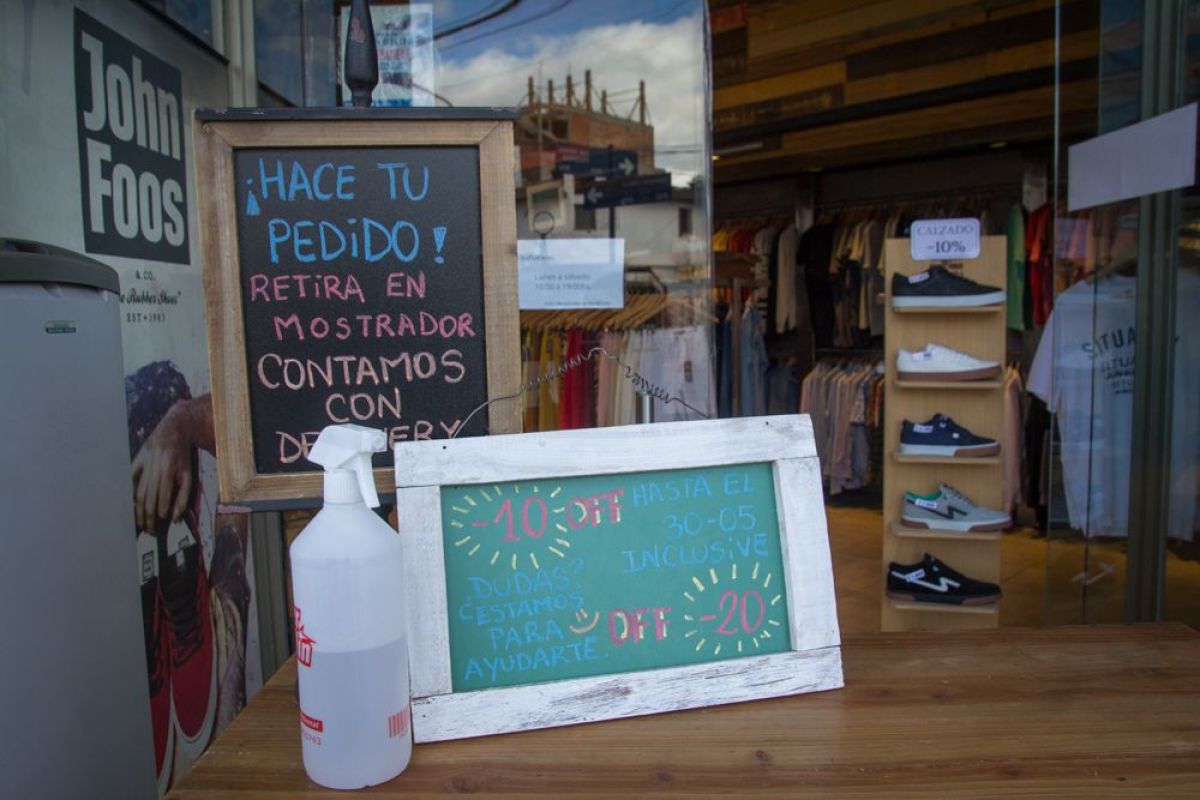 John
Foos
& CO.
Rubber Shoes
EST • 1983
¡HACE TU
PEDIDO!
RETIRA EN
MOSTRADOR
CONTAMOS
CON
DELIVERY
Lunes a sábado
CALZADO
-10%
-10 OFF
HASTA EL
30-05
INCLUSIVE
¿DUDAS?
ESTAMOS
PARA
AYUDARTE.
OFF -20